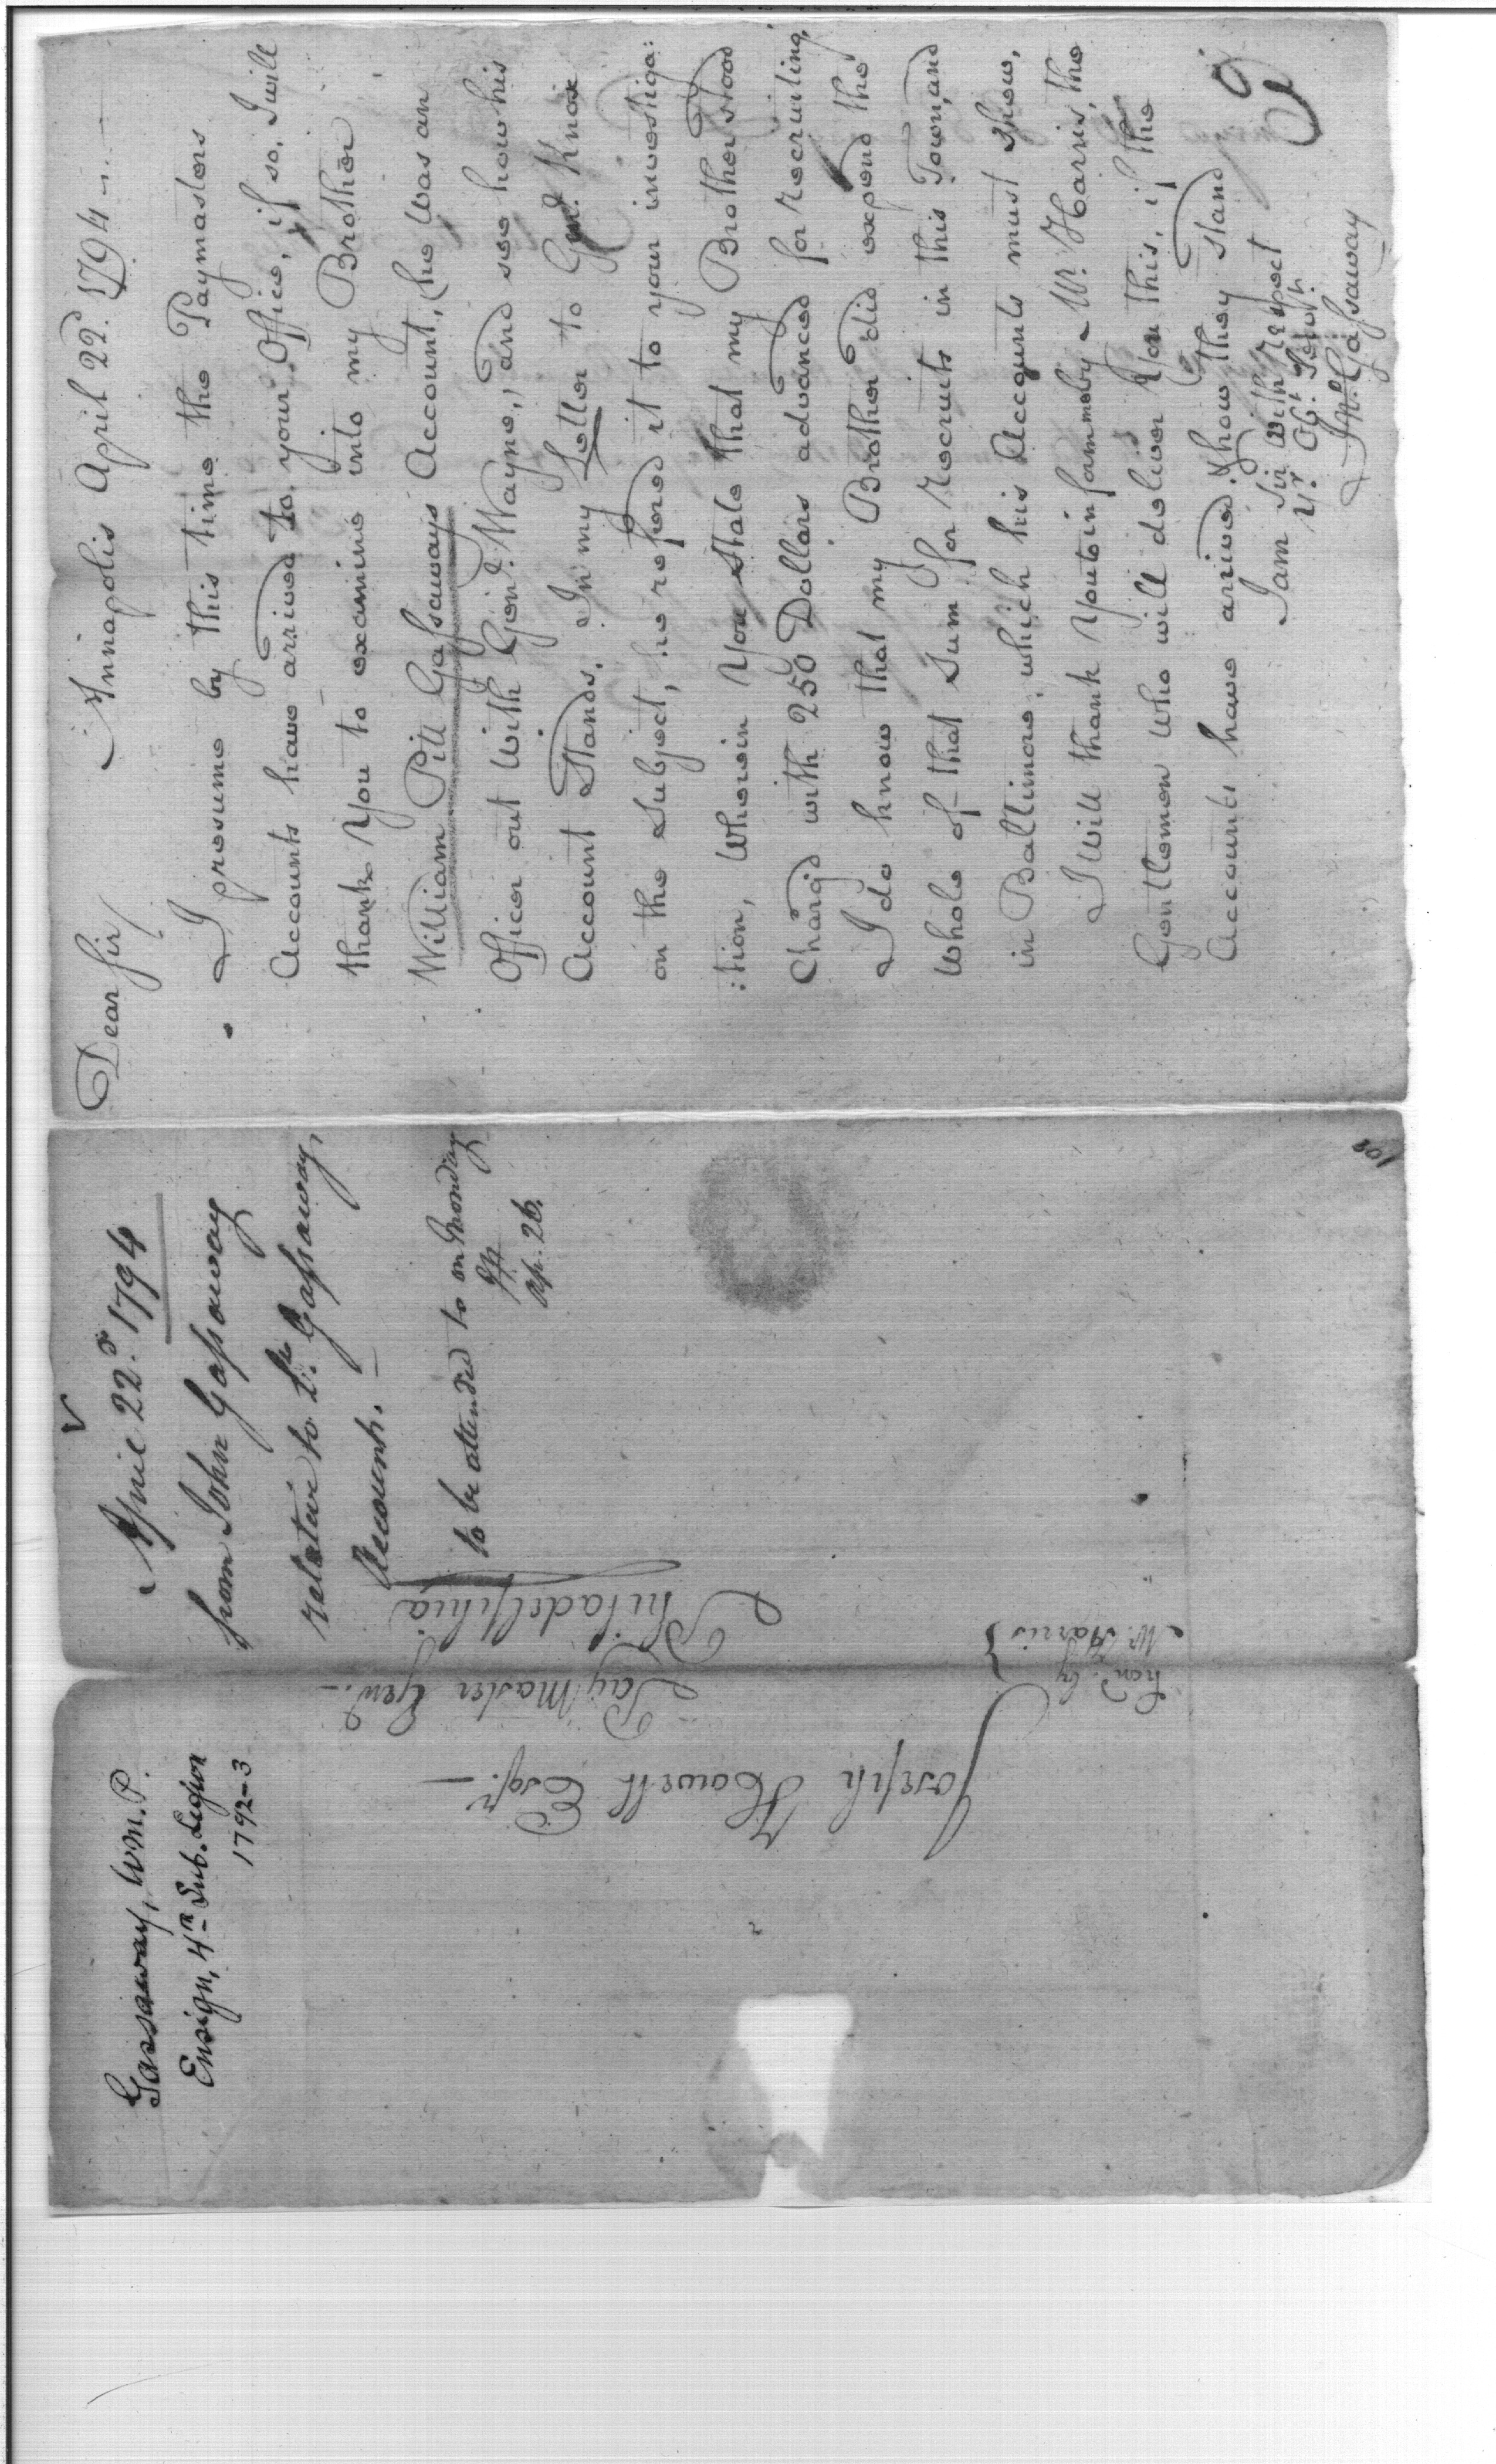 Dear Sir/ Annapolis April 22d. 1794 –
I presume by this time the Paymasters
Accounts have arrived to your Office, if so, I will
thank You to examine into my Brother
William Pitt Gassaways Account, (he was an
Officer out with Genl. Wayne,) and see how his
Account Stands. In my Letter to Genl. Knox
on the Subject, he refered it to your investiga:
:tion, wherein You State that my Brother Stood
Charg'd with 250 Dollars advanced for recruiting,
I do know that my Brother did expend the
whole of that Sum for recruits in this Town, and
in Baltimore, which his Accounts must show,
I will thank You to inform me by Mr. Harris, the
Gentlemen who will deliver You this, if the
Accounts have arived, & how they stand
I am Sir with respect
Yr. Ob. Servt.
Jno. Gassaway
April 22d. 1794
from John Gassaway
relative to Lt. Gassaway,
Accounts. –
to be attended to on Monday
ap. 26.
102
Joseph Howell Esqr. –
Pay Master Genl. –
Philadelphia
hond. by
Mr. Harris
Gassaway, Wm. P.
Ensign, 4th Sub. Legion
1792-3